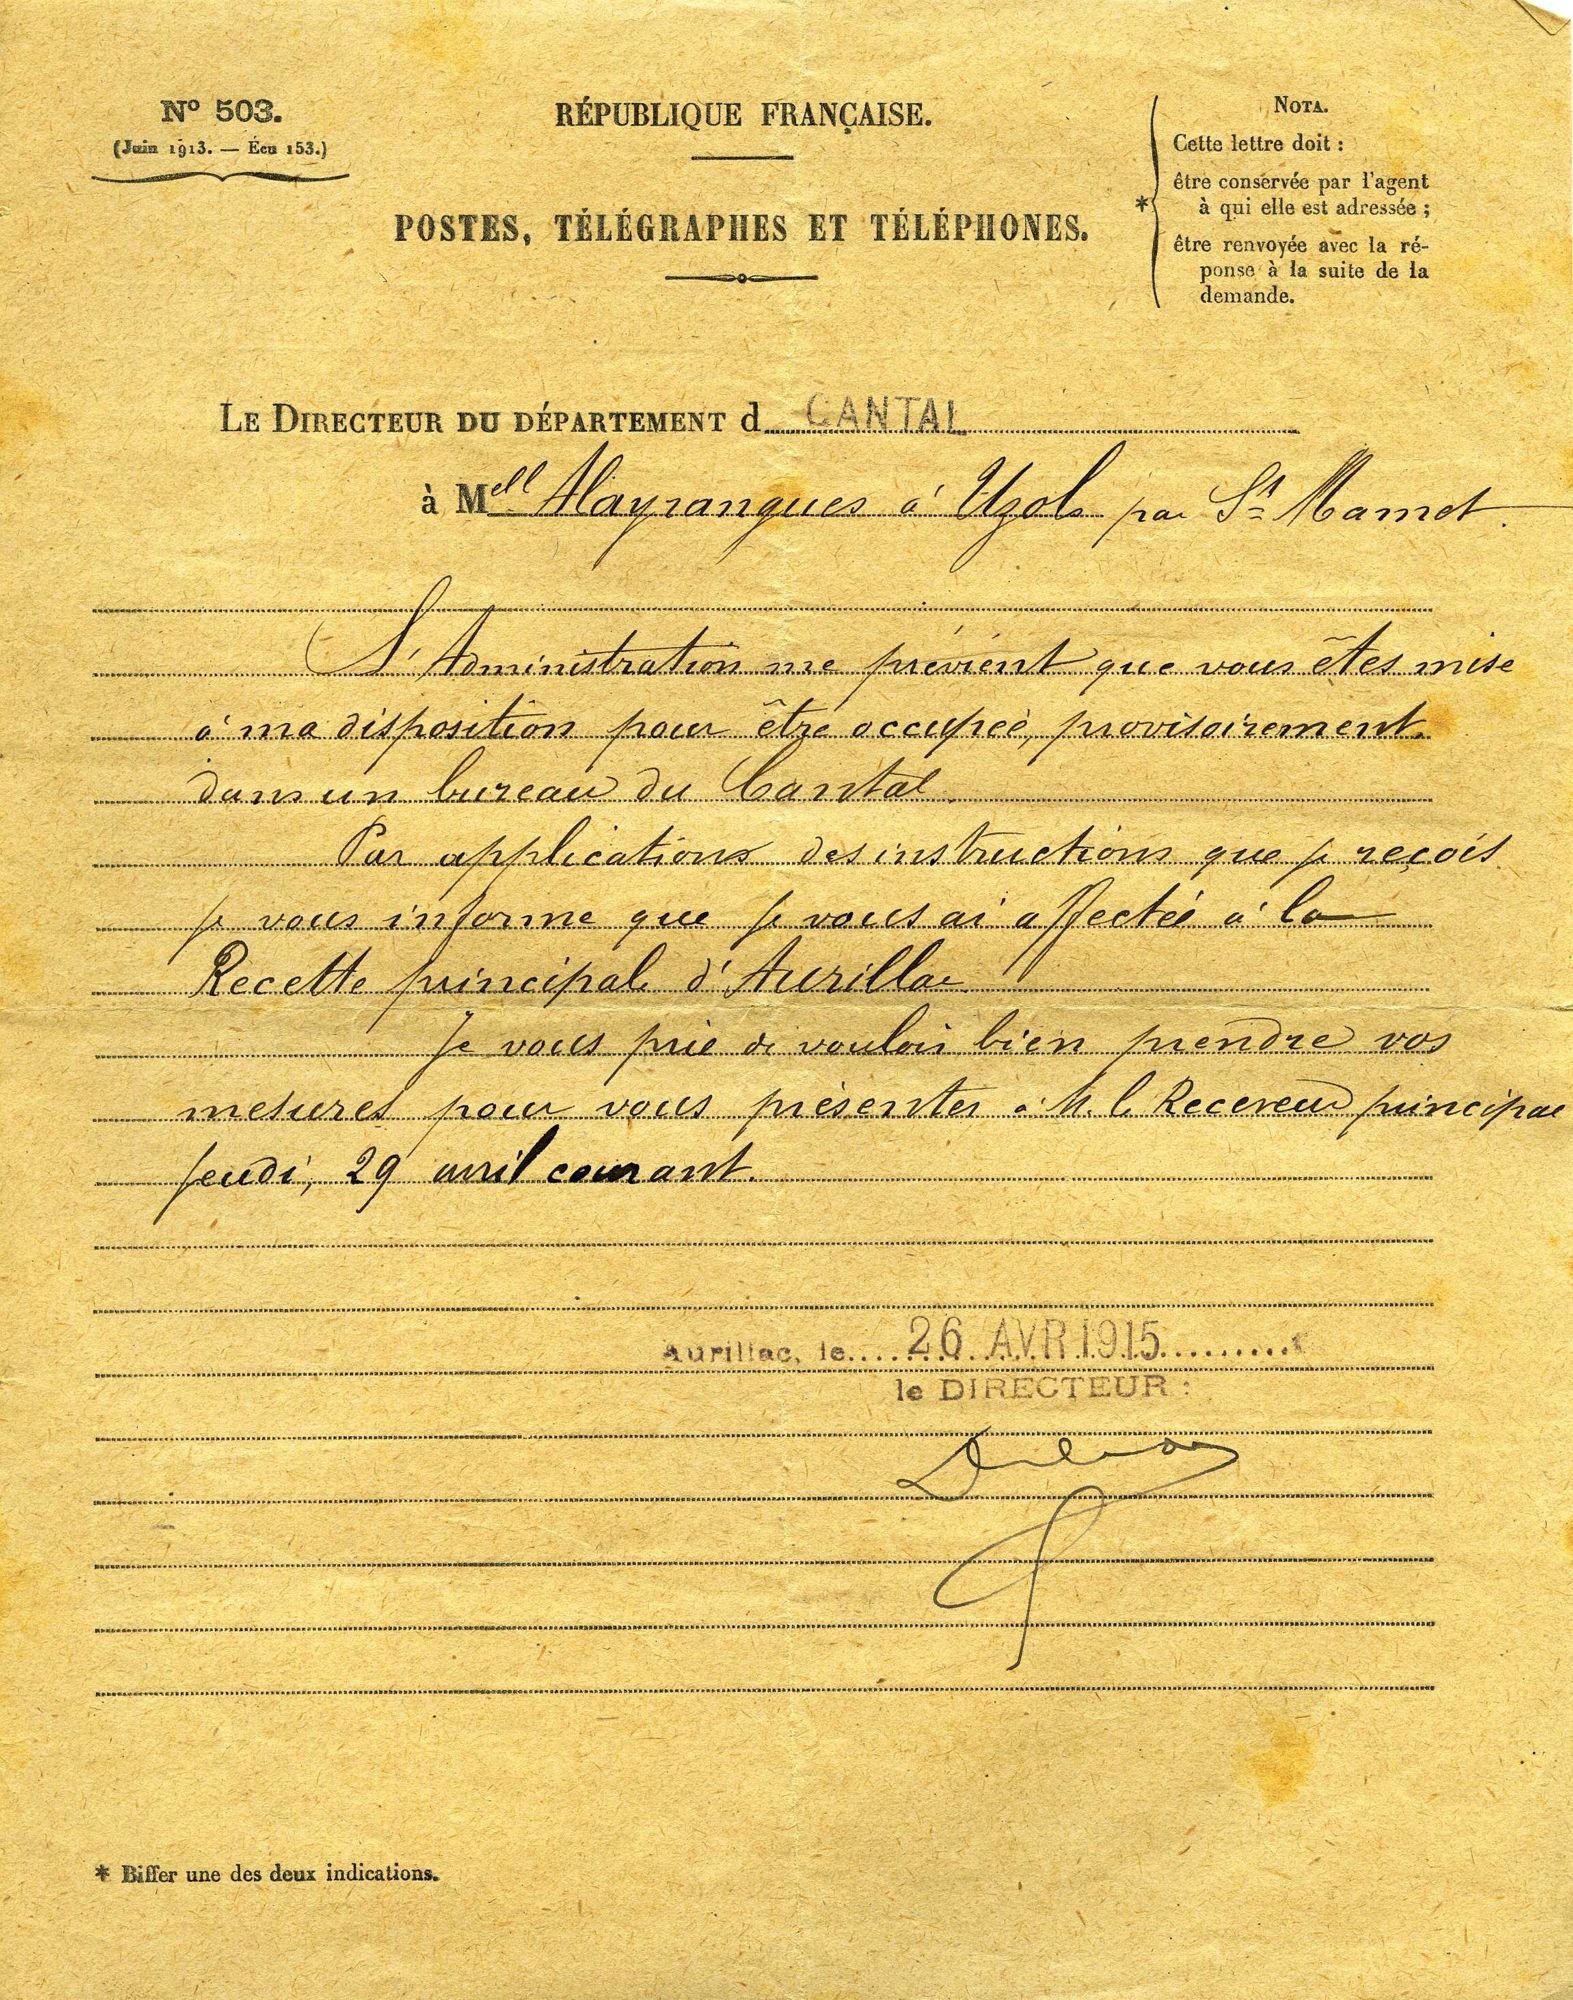 N° 503.
(Juin 1913. — Écu 153.)
RÉPUBLIQUE FRANÇAISE.
POSTES, TÉLÉGRAPHES ET TÉLÉPHONES.
NOTA.
Cette lettre doit :
être conservée par l'agent
à qui elle est adressée ;
*
être renvoyée avec la ré-
ponse à la suite de la
demande.
LE DIRECTEUR DU DÉPARTEMENT d CANTAL
à Mell Mayrangues à Uzols par St Mamet.
L'Administration me prévient que vous êtes mise
à ma disposition pour être occupée, provisoirement,
dans un bureau du Cantal.
Par applications des instructions que je reçois
je vous informe que je vous ai affectée à la
Recette principale d'Aurillac.
Je vous prie de vouloir bien prendre vos
mesures pour vous présenter à M. le Receveur principal
jeudi, 29 avril courant.
Aurillac, le 26 AVR 1915
le DIRECTEUR :
* Biffer une des deux indications.